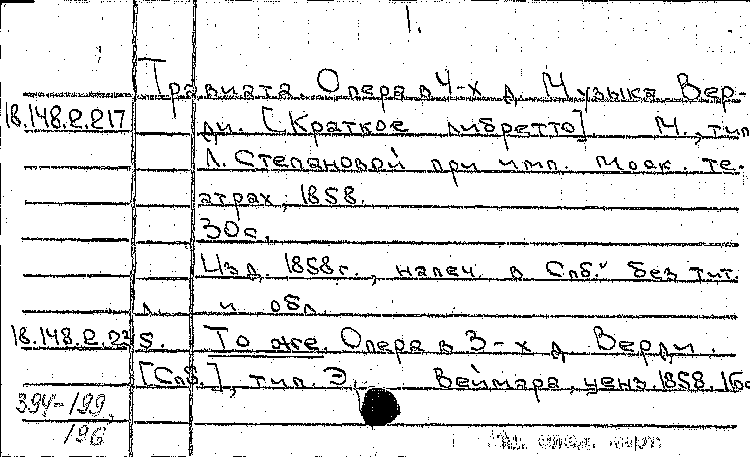 1.
Травиата. Опера в 4-х д. Музыка Вер-
18.148.2.217 ди. [Краткое либретто]. М., тип.
Л. Степановой при имп. Моск. те-
атрах, 1858.
30 с.
Изд. 1858 г., напеч. в Спб." без тит.
л. и обл.
18.148.2.225. То же. Опера в 3-х д. Верди.
[Спб.], тип. Э. Веймара, ценз. 1858. 16 с
394-199,
196